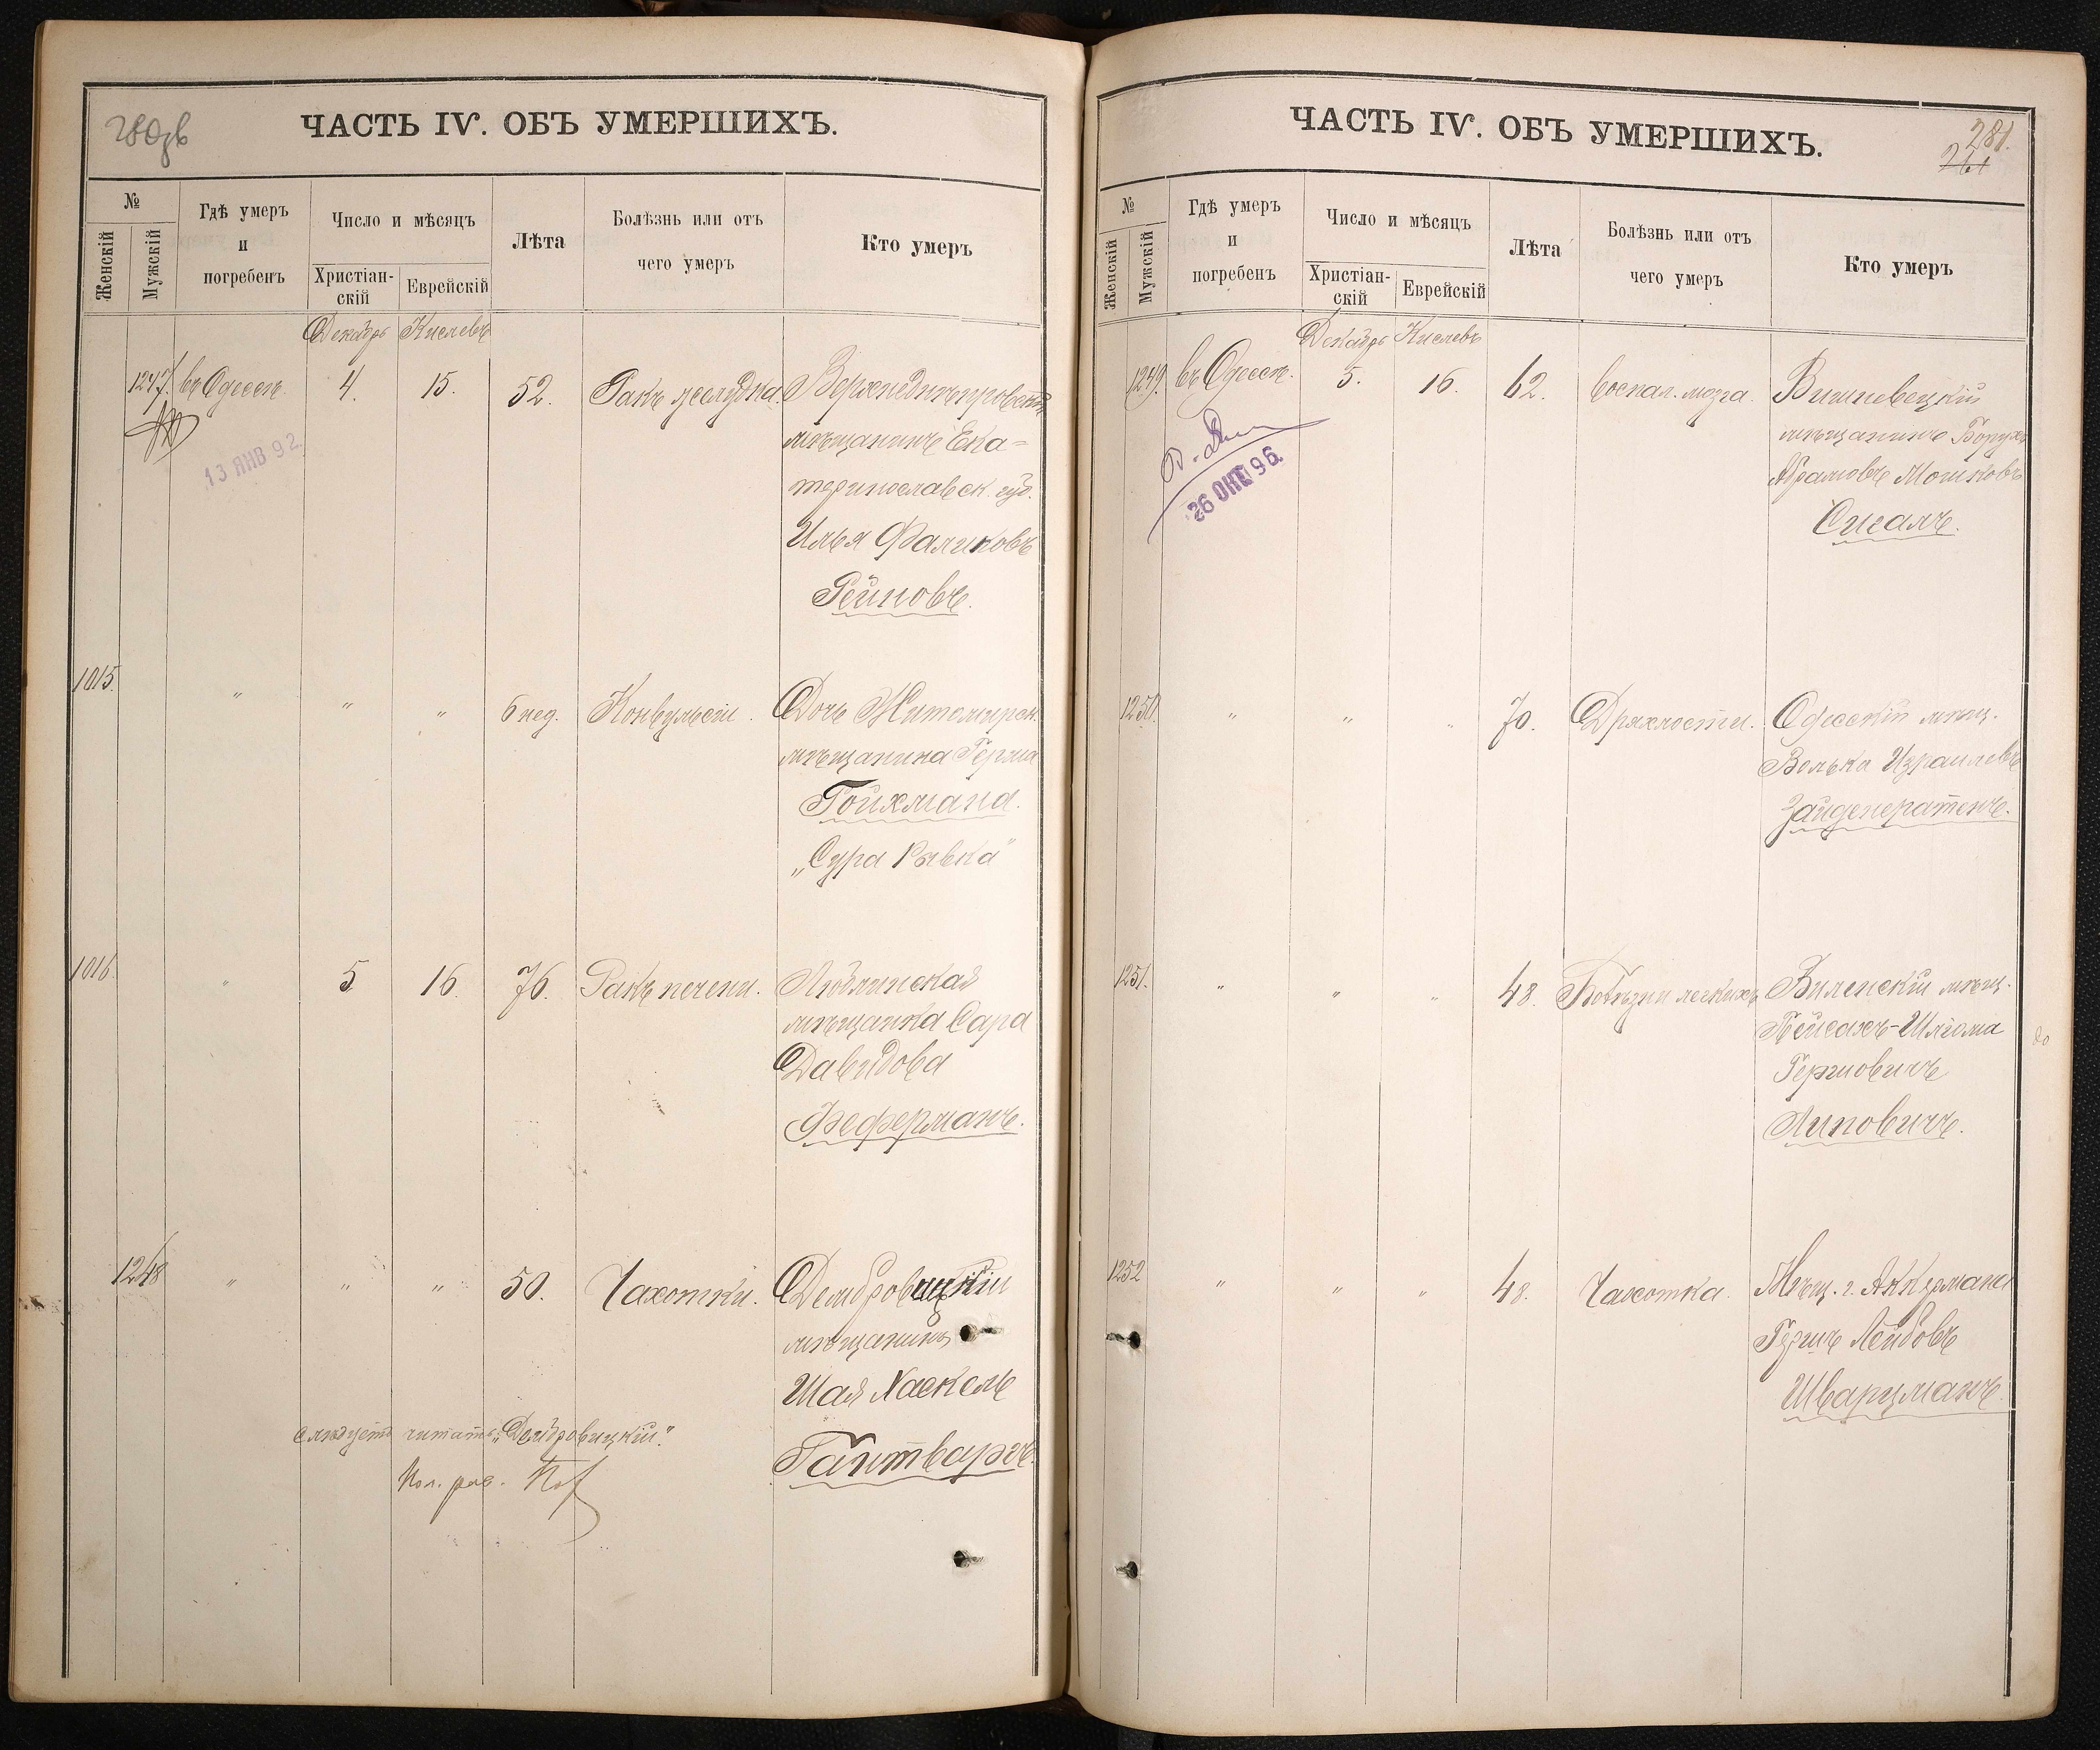 280об
ЧАСТЬ IV. ОБЪ УМЕРШИХЪ.
№
Женскій
Мужскій
Гдѣ умеръ
и
погребенъ
Число и мѣсяцъ
Христіан-
скій
Еврейскій
Лѣта
Болѣзнь или отъ
чего умеръ
Кто умеръ
Декабрь Кислевъ
1247 въ Одессѣ. 4. 15. 52. Ракъ желудка. Верхнеднѣпровскій
мѣщанинъ Ека-
теринославск. губ.
Илья Фаликовъ
Рейновъ.
13 ЯНВ 92
1015. " " " 6 нед. Конвульсіи. Дочь Житомирск.
мѣщанина Герша
Гойхмана.
„Сура Ривка"
1016. " 5 16. 76. Ракъ печени. Люблинская
мѣщанка Сара
Давидова
Феферманъ.
1248 " " " 50. Чахотки. Домбровицкій
мѣщанинъ
Шая Хаскель
Гантваргъ.
Слѣдуетъ читать: „Домбровицкій".
ЧАСТЬ IV. ОБЪ УМЕРШИХЪ.
281.
261
№
Женскій
Мужскій
Гдѣ умеръ
и
погребенъ
Число и мѣсяцъ
Христіан-
скій
Еврейскій
Лѣта
Болѣзнь или отъ
чего умеръ
Кто умеръ
Декабрь Кислевъ
1249. въ Одессѣ. 5. 16. 62. Воспал. мозга. Вишневецкій
мѣщанинъ Борухъ
Абрамовъ Мошковъ
Сигалъ.
26 ОКТ 96.
1250. " " " 70. Дряхлости. Одесскій мѣщ.
Волько Израилевъ
Зайденератенъ.
1251. " " " 48. Болѣзни легкихъ Виленскій мѣщ.
Пейсахъ-Шлома
Гершовичъ
Липовичъ.
1252 " " " 48. Чахотка. Мѣщ. г. Аккермана
Гершъ Лейбовъ
Шварцманъ.